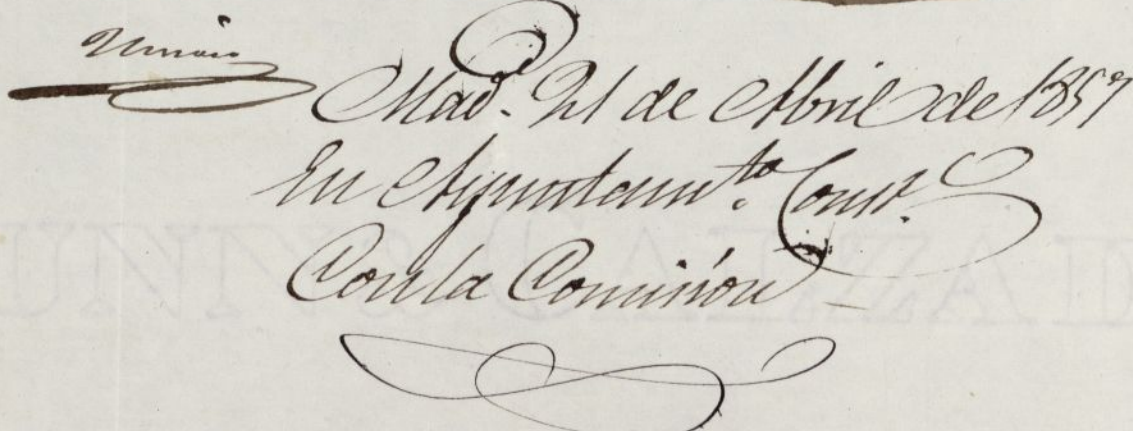 Mad. 21 de Abril de 1857
En Ayuntam.to Const.
Con la Comisión